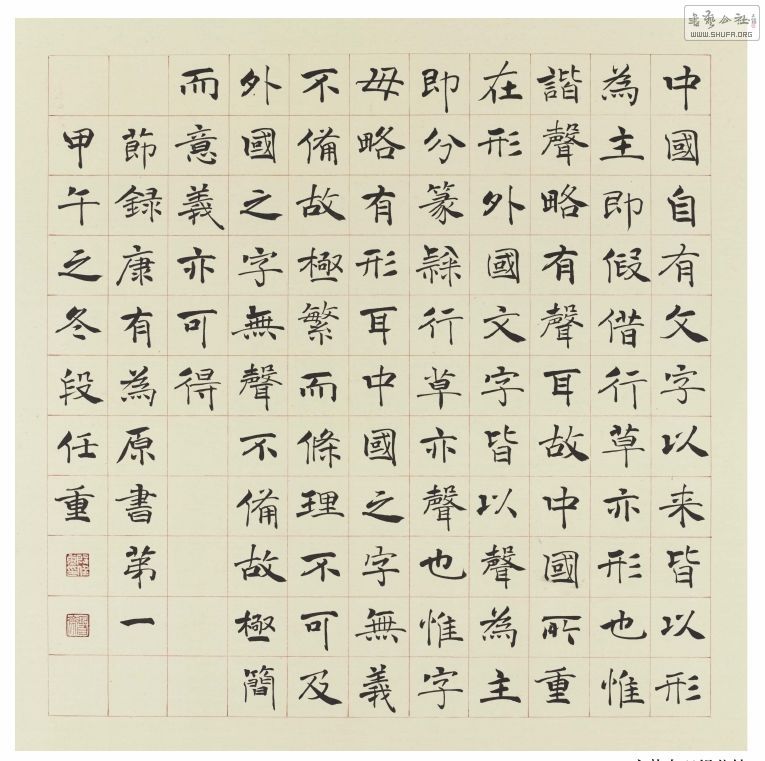 中國自有文字以来皆以形
為主即假借行草亦形也惟
諧聲略有聲耳故中國所重
在形外國文字皆以聲為主
即分篆隸行草亦聲也惟字
母略有形耳中國之字無義
不備故極繁而條理不可及
外國之字無聲不備故極簡
而意義亦可得
節録康有為原書第一
甲午之冬段任重
WWW.SHUFA.ORG